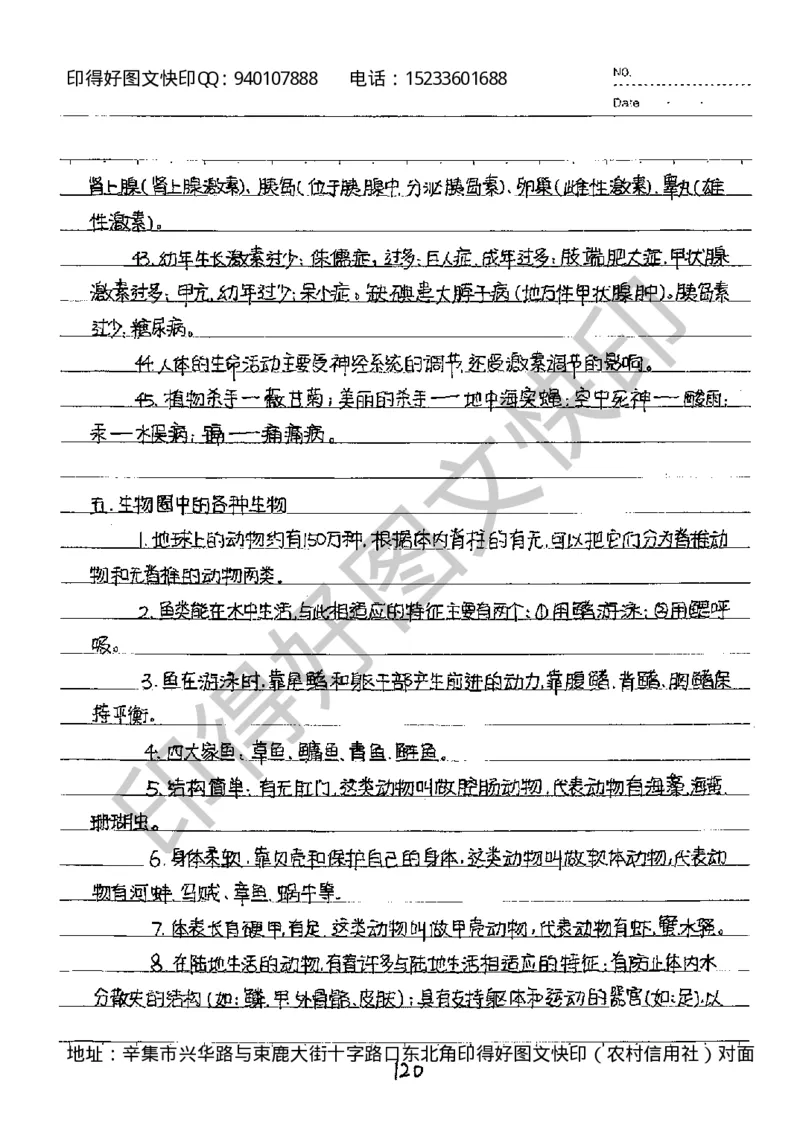 印得好图文快印QQ：940107888 电话：15233601688
NO.
Date
肾上腺(肾上腺激素)、胰岛(位于胰腺中,分泌胰岛素)、卵巢(雌性激素).睾丸(雄
性激素)。
43.幼年生长激素过少：侏儒症，过多：巨人症.成年过多：肢端肥大症.甲状腺
激素过多：甲亢,幼年过少：呆小症。缺碘患大脖子病(地方性甲状腺肿)。胰岛素
过少:糖尿病。
44.人体的生命活动主要受神经系统的调节,还受激素调节的影响。
45.植物杀手一薇甘菊；美丽的杀手一一地中海实蝇；空中死神一一酸雨；
汞一一水俣病；镉一一痛痛病。
五.生物圈中的各种生物
1.地球上的动物约有150万种,根据体内脊柱的有无,可以把它们分为脊椎动
物和无脊椎的动物两类。
2.鱼类能在水中生活,与此相适应的特征主要有两个：①用鳍游泳；②用鳃呼
吸。
3.鱼在游泳时,靠尾鳍和躯干部产生前进的动力,靠腹鳍.背鳍、胸鳍保
持平衡。
4.四大家鱼：草鱼、鳙鱼、青鱼.鲢鱼。
5.结构简单,有无肛门,这类动物叫做腔肠动物,代表动物有海藻,海蜇.
珊瑚虫。
6.身体柔软,靠贝壳和保护自己的身体,这类动物叫做软体动物,代表动
物有河蚌.乌贼、章鱼.蜗牛等.
7.体表长有硬甲,有足.这类动物叫做甲壳动物,代表动物有虾.蟹.水蚤。
8.在陆地生活的动物,有着许多与陆地生活相适应的特征：有防止体内水
分散失的结构(如：鳞.甲.外骨骼.皮肤)；具有支持躯体和运动的器官(如：足).以
地址：辛集市兴华路与束鹿大街十字路口东北角印得好图文快印（农村信用社）对面
120
印得好图文快印